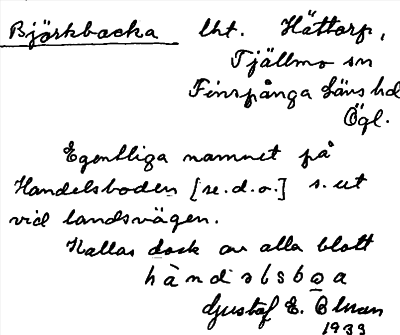 Björkbacka lht. Hättorp,
Tjällmo sn
Finspånga läns hd
Ögl.
Egentliga namnet på
Handelsboden [se.d.o.] s. ut
vid landsvägen.
Kallas dock av alla blott
hàndəlsbəa
Gustaf E. Elman
1933